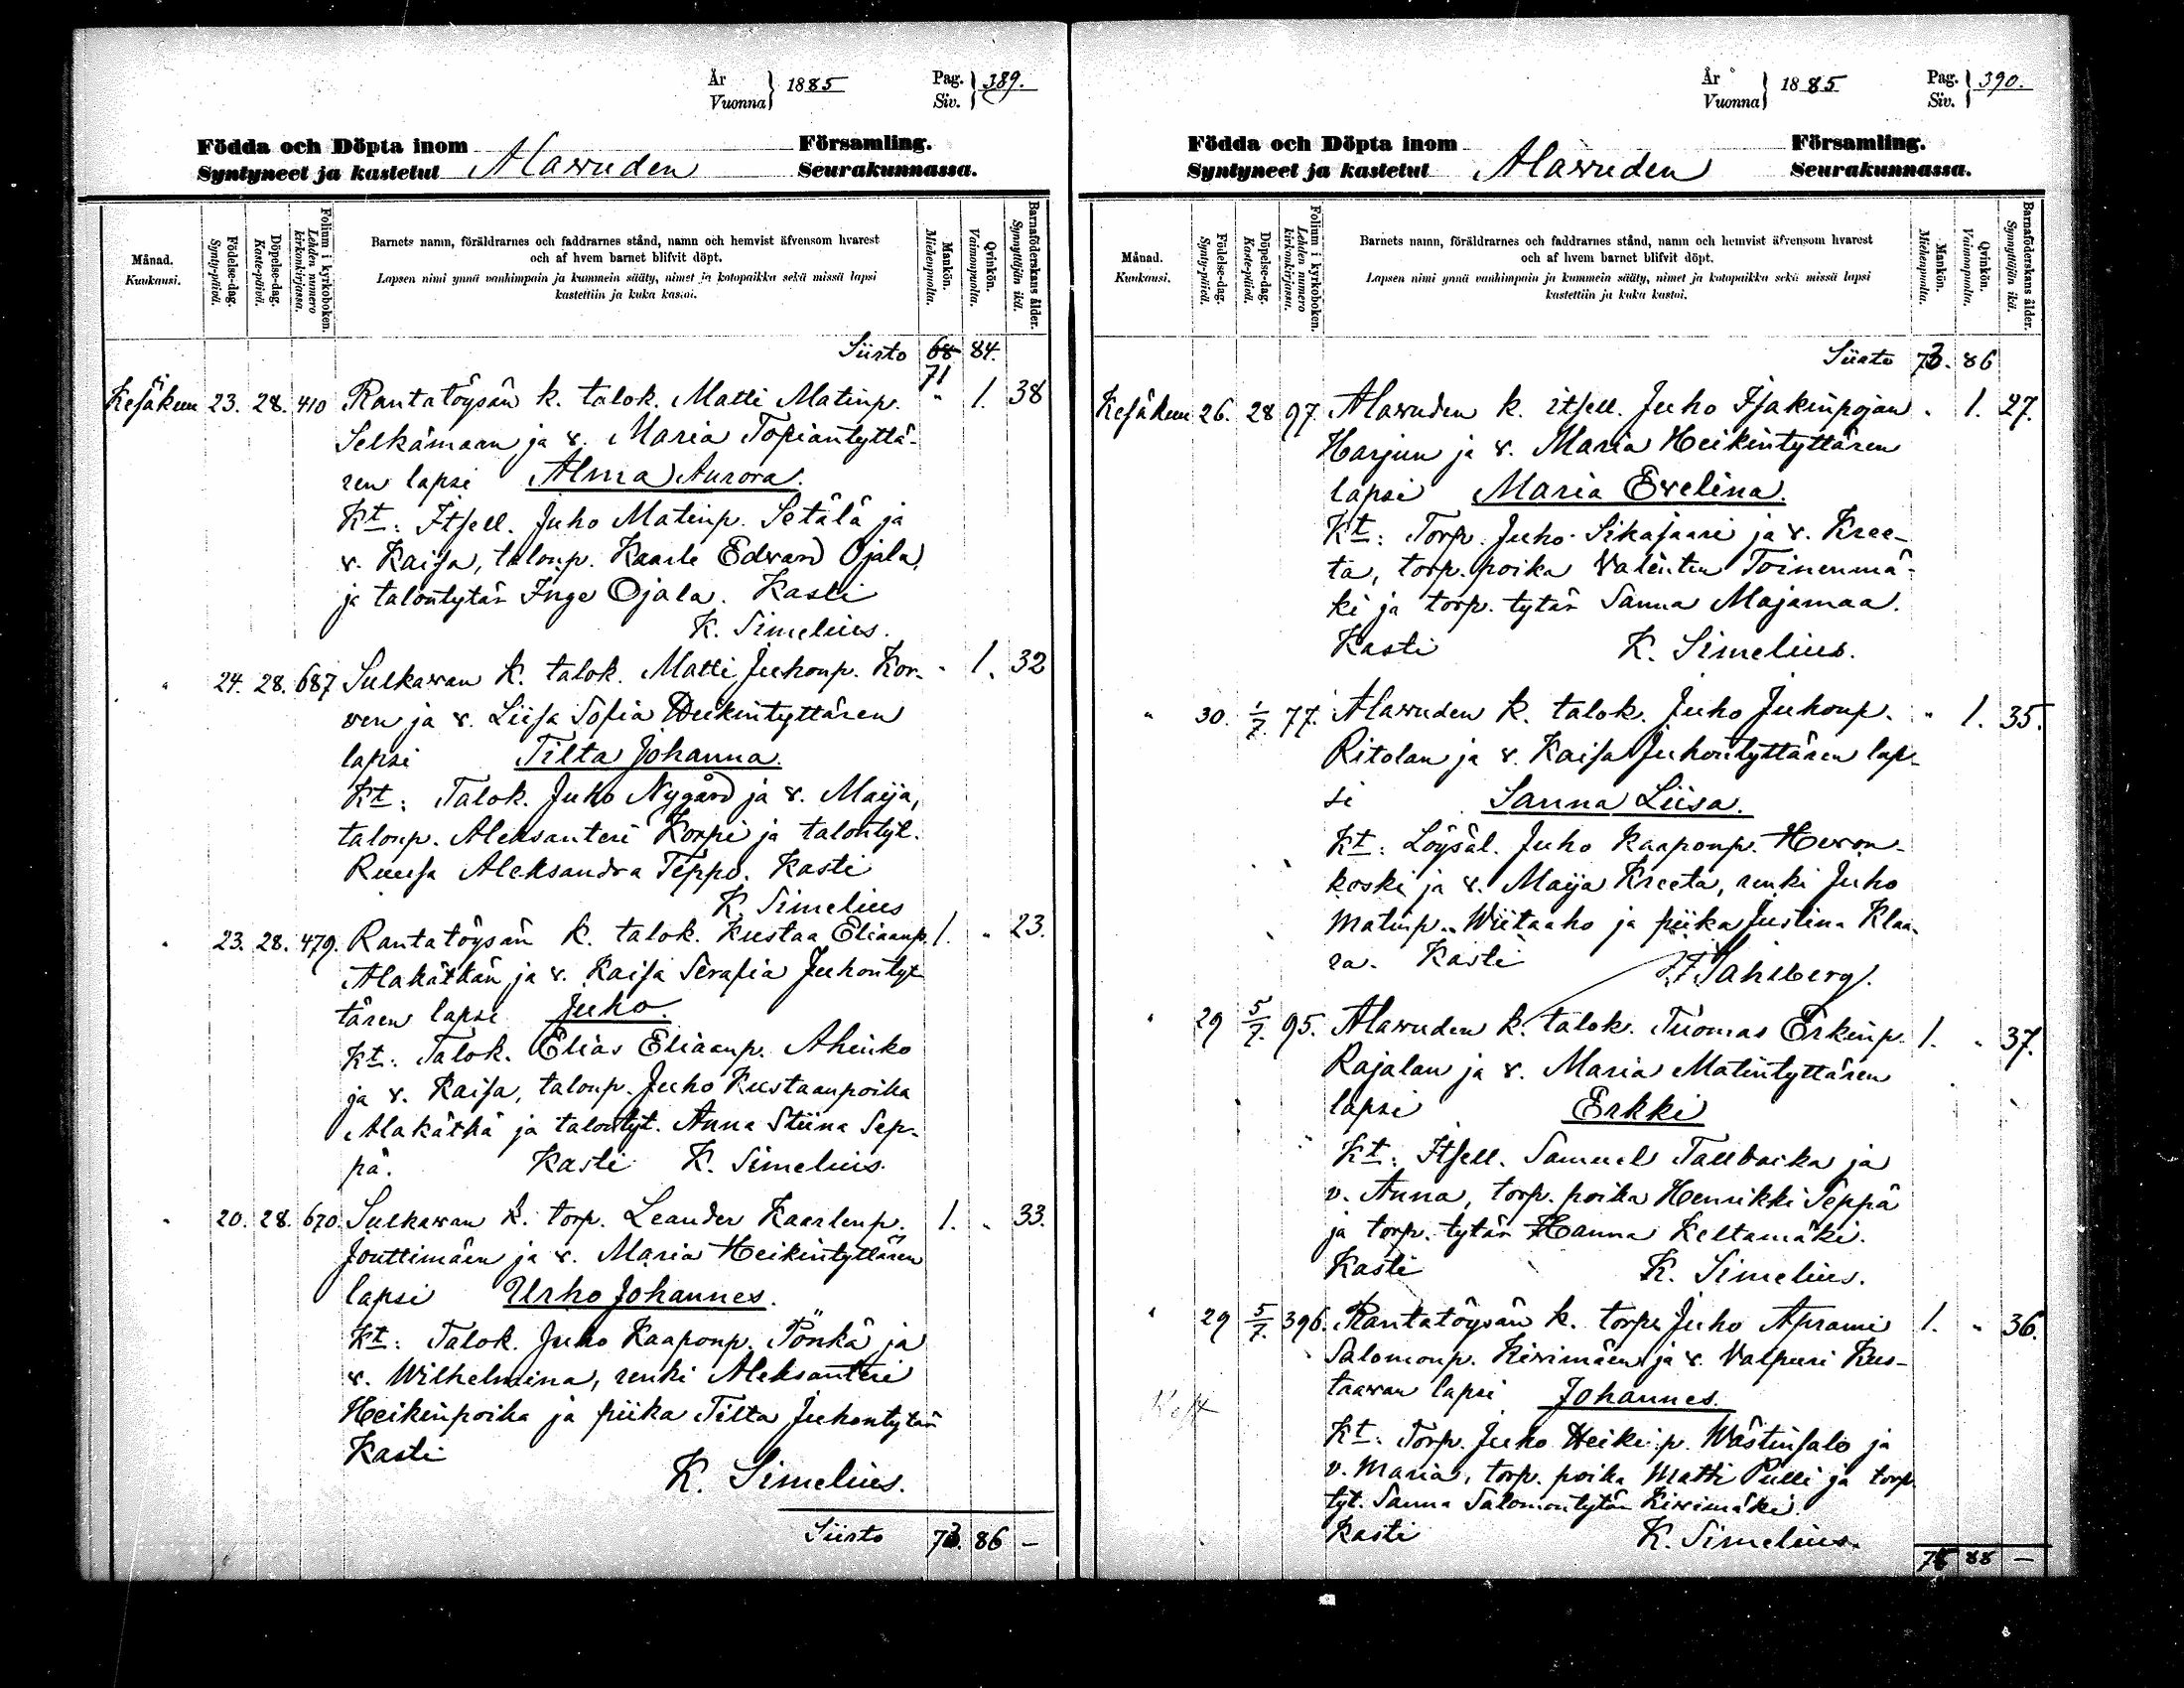 År Vuonna } 1885 Pag. Siv. } 389.
Födda och Döpta inom Församling.
Syntyneet ja kastetut Alavuden Seurakunnassa.
Månad. Kuukausi.
Födelse-dag. Synty-päivä.
Döpelse-dag. Kaste-päivä.
Folium i kyrkoboken. Lehden numero kirkonkirjassa.
Barnets namn, föräldrarnes och faddrarnes stånd, namn och hemvist äfvensom hvarest
och af hvem barnet blifvit döpt.
Lapsen nimi ynnä vanhimpain ja kummein sääty, nimet ja kotopaikka sekä missä lapsi
kastettiin ja kuka kastoi.
Mankön. Miehenpuolta.
Qvinkön. Vaimonpuolta.
Barnaföderskans ålder. Synnyttäjän ikä.
Siirto 68 84.
71
Kesäkuu 23. 28. 410 Rantatöysän k. talok. Matti Matinp. " 1. 38
Selkämaan ja v. Maria Topiantyttä-
ren lapsi Alma Aurora.
Kt: Itsell. Juho Matinp. Setälä ja
v. Kaisa, talonp. Kaarle Edvard Ojala,
ja talontytär Inge Ojala. Kasti
K. Simelius.
" 24. 28. 687 Sulkavan k. talok. Matti Juhonp. Kor- " 1. 32
ven ja v. Liisa Sofia Heikintyttären
lapsi Tilta Johanna.
Kt: Talok. Juho Nygård ja v. Maija,
talonp. Aleksanteri Korpi ja talontyt.
Ruusa Aleksandra Teppo. Kasti
K. Simelius
" 23. 28. 479. Rantatöysän k. talok. Kustaa Eliaanp. 1. " 23.
Alakätkän ja v. Kaisa Serafia Juhontyt-
tären lapsi Juho.
Kt: Talok. Elias Eliaanp. Ahinko
ja v. Kaisa, talonp. Juho Kustaanpoika
Alakätkä ja talontyt. Anna Stiina Sep-
pä. Kasti K. Simelius.
" 20. 28. 670. Sulkavan k. torp. Leander Kaarlenp. 1. " 33.
Jouttimäen ja v. Maria Heikintyttären
lapsi Urho Johannes.
Kt: Talok. Juho Kaaponp. Pönkä ja
v. Wilhelmina, renki Aleksanteri
Heikinpoika ja piika Tilta Juhontytär
Kasti
K. Simelius.
Siirto 73. 86 —
År Vuonna } 1885 Pag. Siv. } 390.
Födda och Döpta inom Församling.
Syntyneet ja kastetut Alavuden Seurakunnassa.
Månad. Kuukausi.
Födelse-dag. Synty-päivä.
Döpelse-dag. Kaste-päivä.
Folium i kyrkoboken. Lehden numero kirkonkirjassa.
Barnets namn, föräldrarnes och faddrarnes stånd, namn och hemvist äfvensom hvarest
och af hvem barnet blifvit döpt.
Lapsen nimi ynnä vanhimpain ja kummein sääty, nimet ja kotopaikka sekä missä lapsi
kastettiin ja kuka kastoi.
Mankön. Miehenpuolta.
Qvinkön. Vaimonpuolta.
Barnaföderskans ålder. Synnyttäjän ikä.
Siirto 73. 86
Kesäkuu 26. 28 97. Alavuden k. itsell. Juho Isakinpojan " 1. 27.
Harjun ja v. Maria Heikintyttären
lapsi Maria Evelina.
Kt: Torp. Juho Sikasaari ja v. Kree-
ta, torp. poika Valentin Toinenmä-
ki ja torp. tytär Sanna Majamaa.
Kasti K. Simelius.
" 30. 1/7. 77. Alavuden k. talok. Juho Juhonp. " 1. 35.
Ritolan ja v. Kaisa Juhontyttären lap-
si Sanna Liisa.
Kt: Löysäl. Juho Kaaponp. Hevon-
koski ja v. Maija Kreeta, renki Juho
Matinp. Wiitaaho ja piika Justina Klaa-
ra. Kasti Sahlberg.
" 29 5/7. 95. Alavuden k. talok. Tuomas Erkinp. 1. " 37.
Rajalan ja v. Maria Matintyttären
lapsi Erkki
Kt: Itsell. Samuel Tallbacka ja
v. Anna, torp. poika Henrikki Seppä
ja torp. tytär Hanna Keltamäki.
Kasti K. Simelius.
" 29 5/7. 396. Rantatöysän k. torp. Juho Aprami 1. " 36.
Salomonp. Kivimäen ja v. Valpuri Kus-
taavan lapsi Johannes.
Kt: Torp. Juho Heikinp. Wästinsalo ja
v. Maria, torp. poika Matti Pulli ja torp.
tyt. Sanna Salomontytär Kivimäki.
Kasti K. Simelius.
75 88 —